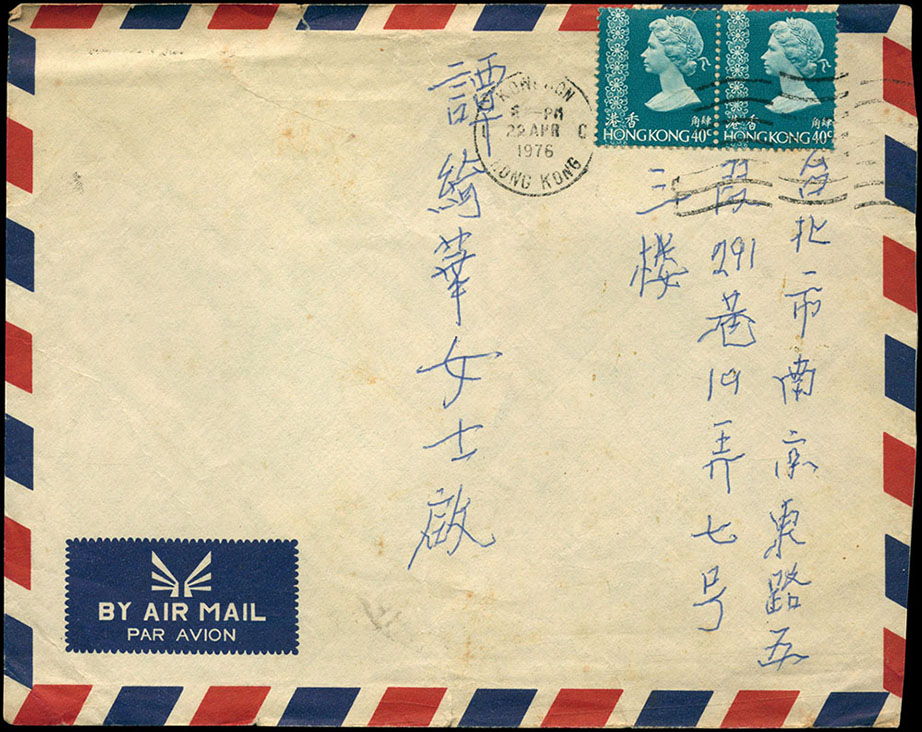 台北市南京東路五
段291巷19弄七号
三楼
譚綺華女士啟
香港
肆角
HONG KONG 40c
香港
肆角
HONG KONG 40c
PM
22 APR
1976
HONG KONG
BY AIR MAIL
PAR AVION